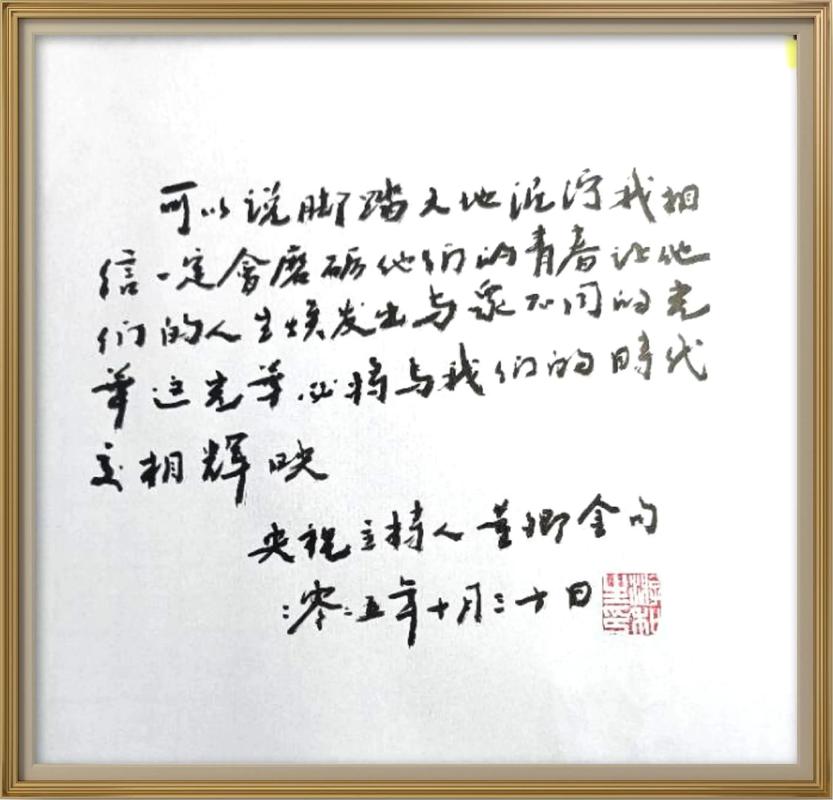 可以说脚踏大地泥泞我相
信一定會磨砺他们的青春让他
们的人生焕发出与众不同的光
華这光華必将与我们的時代
交相輝映
央視主持人董卿金句
二零二五年十月二十日